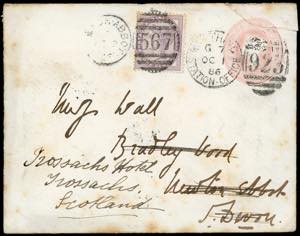 567
G 7
OC 1
86
STATION-OFFICE
923
Wall
Bradley Wood
Newton Abbot
S. Devon
Trossachs Hotel
Trossachs
Scotland